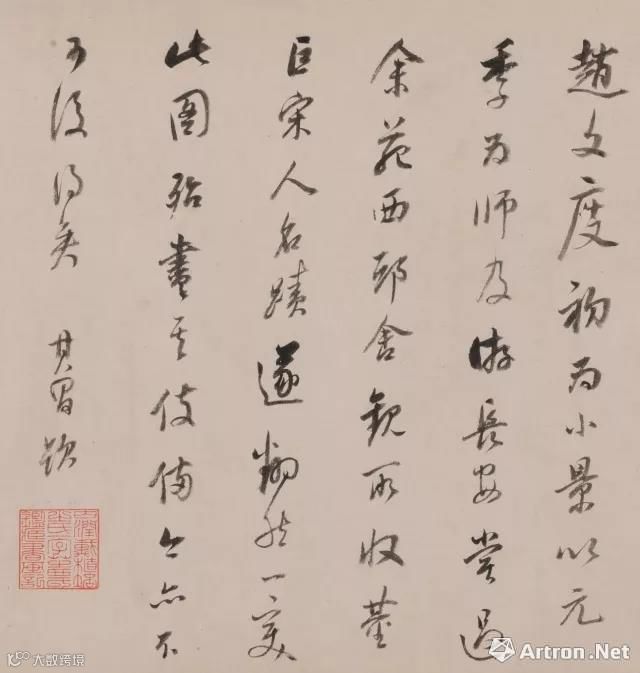 趙文度初爲小景以元
季爲師及游長安嘗過
余苑西邸舍觀所收董
巨宋人名蹟遂翻然一變
此圖殆盡其伎倆今亦不
可復得矣 其昌題
大数跨境
Artron.Net